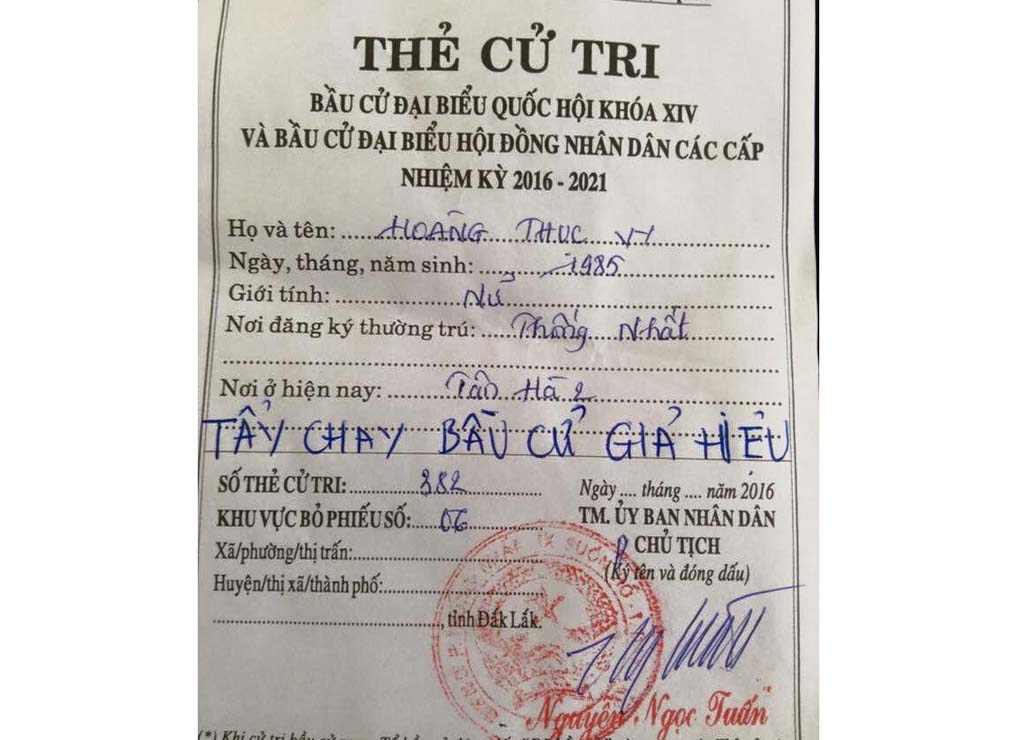 THẺ CỬ TRI
BẦU CỬ ĐẠI BIỂU QUỐC HỘI KHÓA XIV
VÀ BẦU CỬ ĐẠI BIỂU HỘI ĐỒNG NHÂN DÂN CÁC CẤP
NHIỆM KỲ 2016 - 2021
Họ và tên: HOÀNG THỤC VY
Ngày, tháng, năm sinh: 1985
Giới tính: Nữ
Nơi đăng ký thường trú: Thống Nhất
Nơi ở hiện nay: Tân Hà 2
TẨY CHAY BẦU CỬ GIẢ HIỆU
SỐ THẺ CỬ TRI: 382
KHU VỰC BỎ PHIẾU SỐ: 06
Xã/phường/thị trấn:
Huyện/thị xã/thành phố:
, tỉnh Đắk Lắk.
Ngày .... tháng .... năm 2016
TM. ỦY BAN NHÂN DÂN
CHỦ TỊCH
(Ký tên và đóng dấu)
Nguyễn Ngọc Tuấn